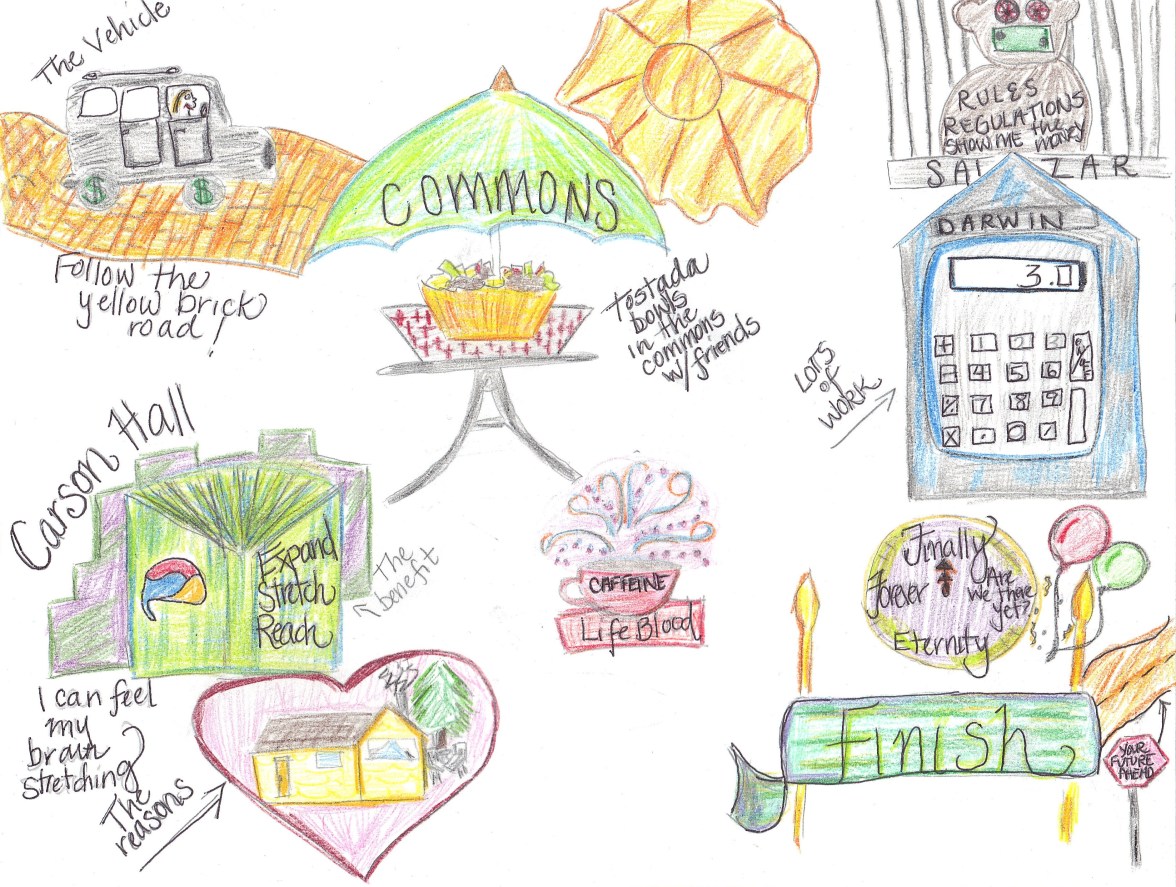 The Vehicle
$ $
Follow the
yellow brick
road!
COMMONS
Tostada
bowls
in the
commons
w/friends
RULES
REGULATIONS
SHOW ME the
money
SAL ZAR
DARWIN
3.0
+ 1 2 3
- 4 5 6
% 7 8 9
X . 0 /
LOTS
of
WORK
Carson Hall
Expand
Stretch
Reach
The
benefit
I can feel
my
brain
stretching
The
reasons
CAFFEINE
Life Blood
Finally
Forever
Are
We there
yet?
Eternity
Finish
YOUR
FUTURE
AHEAD